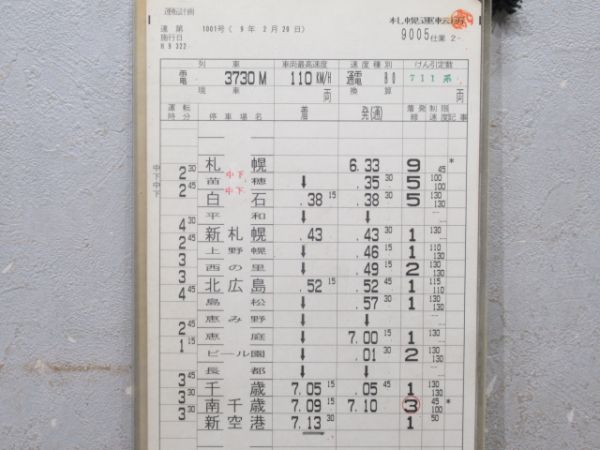 運転計画
達第 1001号(9年2月20日)
施行日
H9322
札幌運転所
9005 仕業 2-
列車 車両最高速度 速度種別 けん引定数
電 3730M 110KM/H 通電 80 711系
現車 両 換算 両
運転時分 停車場名 着 発(通) 着発線 制限速度 記事
札幌 6.33 9 45 *
中下 2 30 苗穂 中下 ↓ .35 30 5 100 100
中下 2 45 白石 中下 .38 15 .38 30 5 130 130
平和 ↓ ↓
4 30 新札幌 .43 .43 30 1 130
2 45 上野幌 ↓ .46 15 1 110 130
3 西の里 ↓ .49 15 2 130 130
3 北広島 .52 15 .52 45 1 115 110
4 45 島松 ↓ .57 30 1 130 130
恵み野 ↓ ↓
2 45 恵庭 ↓ 7.00 15 1 130
1 15 ビール園 ↓ .01 30 2 130
長都 ↓ ↓
3 45 千歳 7.05 15 .05 45 1 130 130
3 30 南千歳 7.09 15 7.10 3 45 100 *
3 30 新空港 7.13 30 1 50